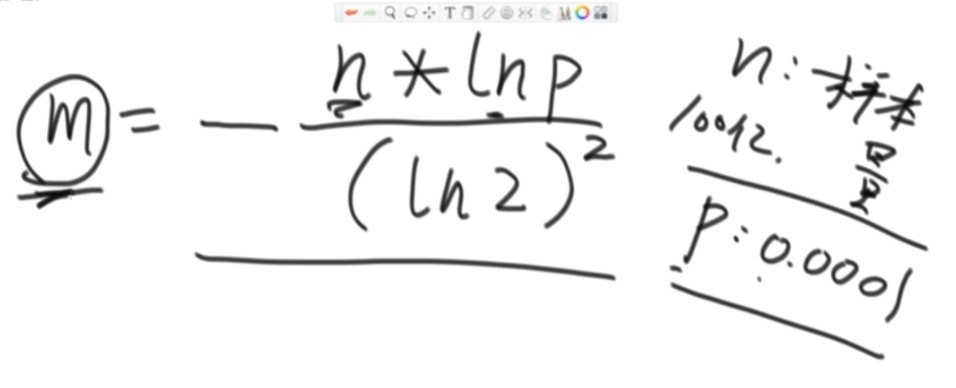 m = - n * ln p / (ln 2)²
n: 样本量
100亿.
p: 0.0001